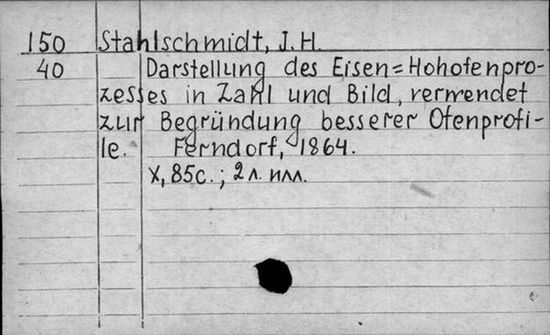 150 Stahlschmidt, J. H.
40 Darstellung des Eisen=Hohofenpro-
zesses in Zahl und Bild, verwendet
zur Begründung besserer Ofenprofi-
le. Ferndorf, 1864.
X, 85c.; 2 л. илл.